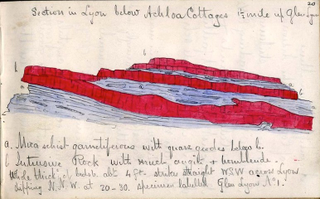 20
Section in Lyon below Achloa Cottages 1½ mile up Glen Lyon
b
b
a
a
a. Mica schist garnetiferous with quartz geodes ledges &c.
b. Intrusive Rock with much augite & hornblende.
Whole thick of beds abt 4 ft. strike straight WSW across Lyon
dipping N.N.W. at 20-30. specimen labelled Glen Lyon No 1.